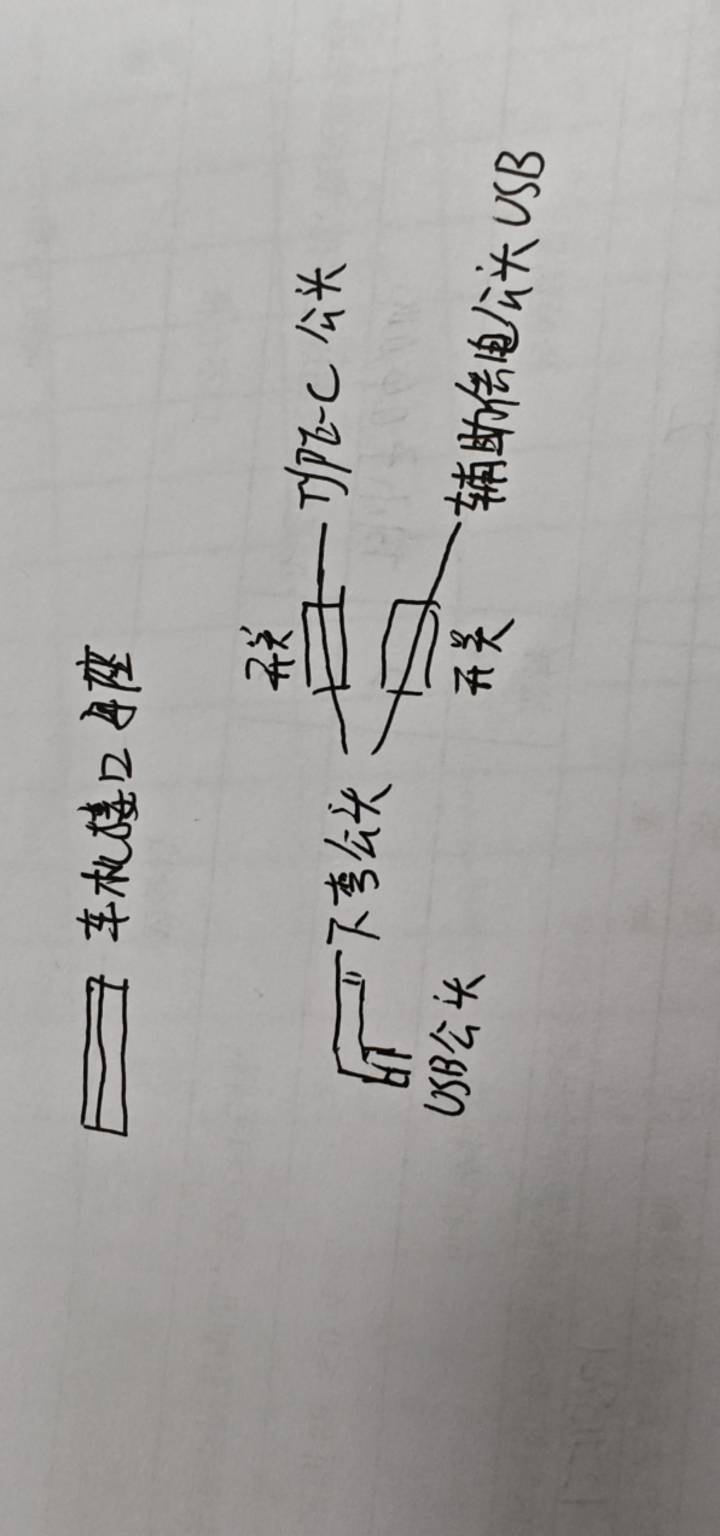 车机接口母座
开关
TYPE-C 公头
下弯公头
辅助供电公头 USB
开关
USB公头